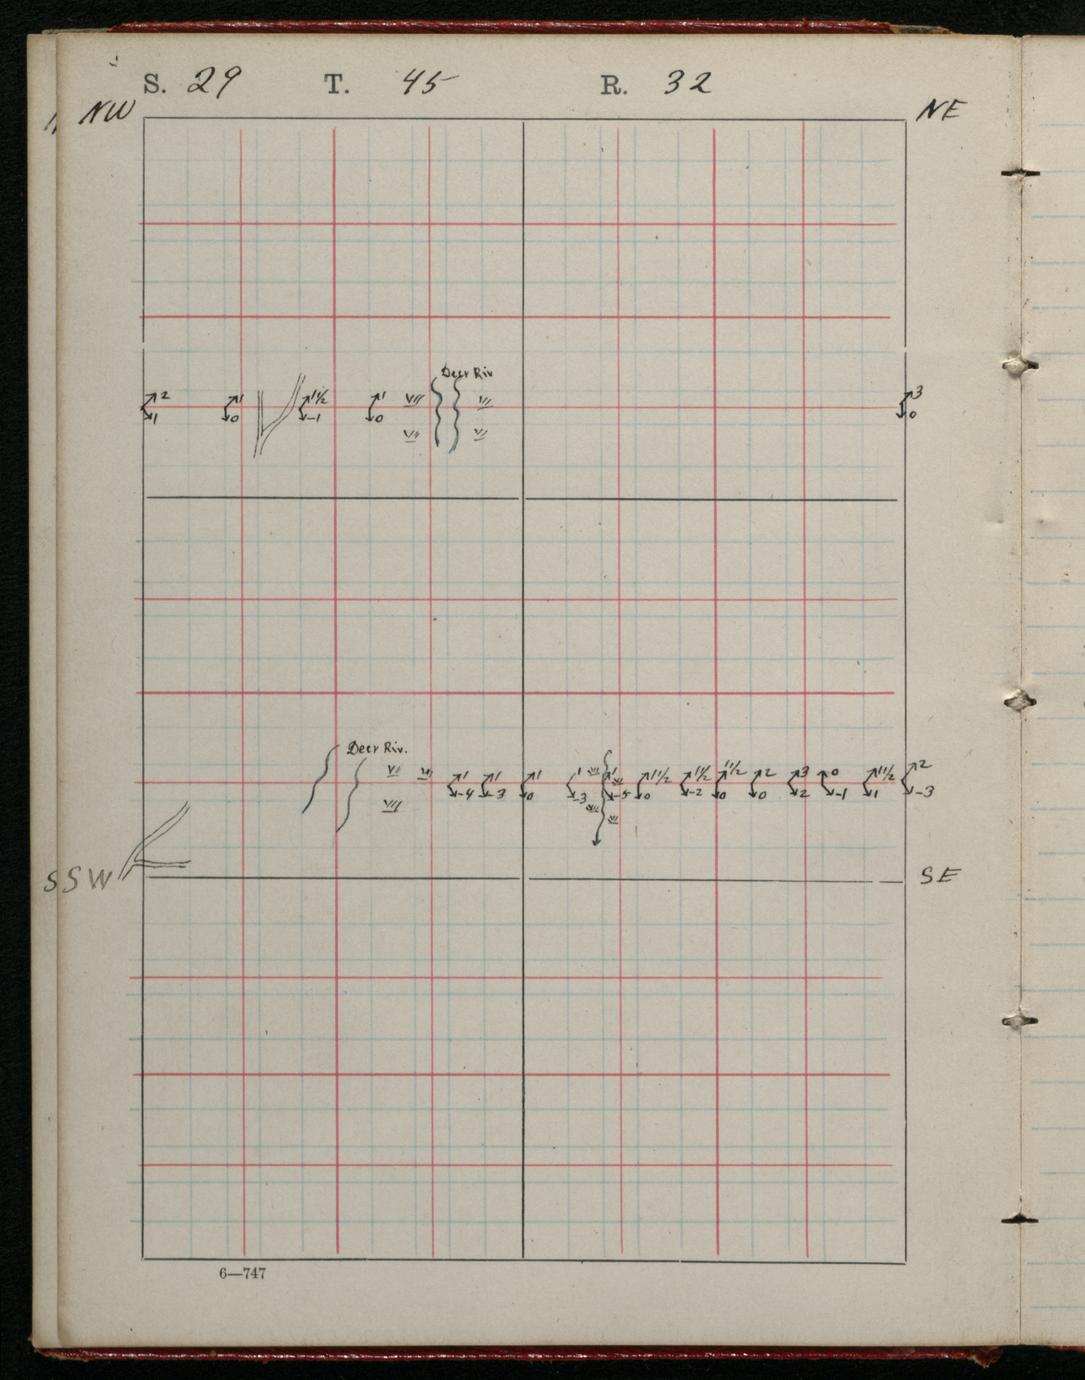 S. 29 T. 45 R. 32
NW NE
Deer Riv
2 1 1½ 1 3
1 0 -1 0 0
Deer Riv.
1 1 1 1 1 1½ 1½ 1½ 2 3 0 1½ 2
-4 -3 0 -3 -5 0 -2 0 0 2 -1 1 -3
S SW SE
6—747